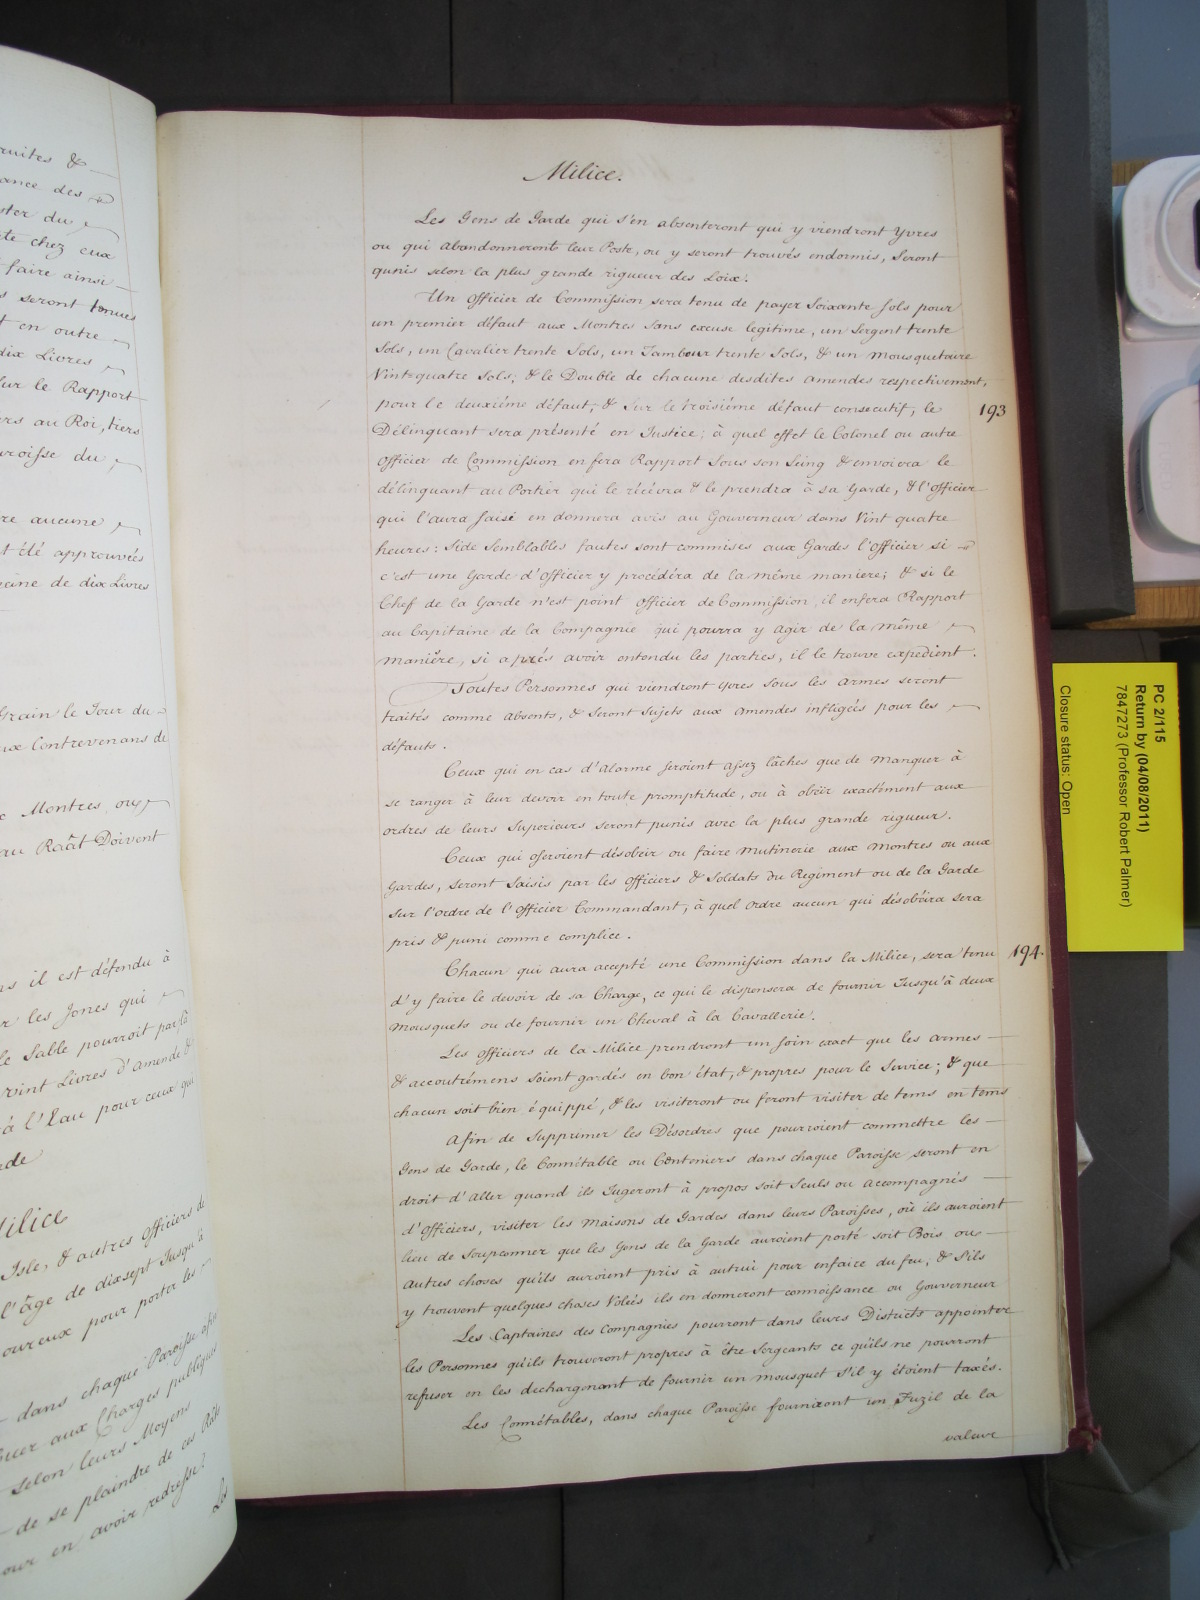 ruites &
ance des
ster du
te chez eux
faire ainsi
s seront tenues
t en outre
dix Livres
sur le Rapport
ers au Roi, tiers
aroisse du
re aucune
t été approuvées
peine de dix Livres
Grain le Jour du
ux Contrevenans de
Montres ou
au Raât Doivent
ns il est défendu à
r les Jones qui
le Sable pourroit par là
vint Livres d'amende &
à l'Eau pour ceux qui
rde
Milice
Isle, & autres Officiers de
l'âge de dixsept Jusqu'à
oureux pour porter les
dans chaque Paroisse afin
buer aux Charges publiques
selon leurs Moyens
de se plaindre de ces
our en avoir redresse?
Les
Milice.
Les Gens de Garde qui s'en absenteront qui y viendront Yvres
ou qui abandonneront leur Poste, ou y seront trouvés endormis, Seront
punis selon la plus grande rigueur des Loix.
Un Officier de Commission sera tenu de payer Soixante Sols pour
un premier défaut aux Montres Sans excuse legitime, un Sergent trente
Sols, un Cavalier trente Sols, un Tambour trente Sols, & un mousquetaire
Vint-quatre Sols; & le Double de chacune desdites amendes respectivement,
pour le deuxiéme défaut; & Sur le troisiéme défaut consecutif, le
193
Délinquant sera présenté en Justice; à quel effet le Colonel ou autre
Officier de Commission en fera Rapport Sous son Seing & envoiera le
délinquant au Portier qui le récévra & le prendra à sa Garde, & l'Officier
qui l'aura saisé en donnera avis au Gouverneur dans Vint quatre
heures: Side Semblables fautes sont commises aux Gardes l'Officier si
c'est une Garde d'Officier y procédéra de la même maniere; & si le
Chef de la Garde n'est point Officier de Commission, il enfera Rapport
au Capitaine de la Compagnie qui pourra y Agir de la même
manière, si aprés avoir entendu les parties, il le trouve expedient.
Toutes Personnes qui viendront yvres Sous les Armes seront
traités comme absents, & Seront Sujets aux amendes infligées pour les
défauts.
Ceux qui en cas d'Alarme seroient assez lâches que de Manquer à
se ranger à leur devoir en toute promptitude, ou à obéir exactément aux
ordres de leurs Superieurs seront punis avec la plus grande rigueur.
Ceux qui oseroient désobeir ou faire mutinerie aux montres ou aux
Gardes, seront Saisis par les Officiers & Soldats du Regiment ou de la Garde
sur l'ordre de l'Officier Commandant; à quel ordre aucun qui désobéira sera
pris & puni comme complice.
Chacun qui aura accepté une Commission dans la Milice, sera tenu
194.
d'y faire le devoir de sa Charge, ce qui le dispensera de fournir Jusqu'à deux
Mousquets ou de fournir un Cheval à la Cavallerie.
Les Officiers de la Milice prendront un Soin exact que les armes
& accoutrémens Soient gardés en bon état, & propres pour le Service; & que
chacun soit bien équippé, & les visiteront ou feront visiter de tems en tems
Afin de Supprimer les Désordres que pourroient commettre les
Gens de Garde, le Connétable ou Centeniers dans chaque Paroisse seront en
droit d'Aller quand ils Jugeront à propos soit Seuls ou accompagnés
d'Officiers, visiter les Maisons de Gardes dans leurs Paroisses, où ils auroient
lieu de Soupconner que les Gens de la Garde auroient porté soit Bois ou
Autres choses qu'ils auroient pris à autrui pour enfaire du feu, & S'ils
y trouvent quelques choses Volées ils en donneront connoissance au Gouverneur
Les Captaines des Compagnies pourront dans leurs Districts appointer
les Personnes qu'ils trouveront propres à être Sergeants ce qu'ils ne pourront
refuser en les dechargenant de fournir un mousquet S'il y étoient taxés.
Les Connétables, dans chaque Paroisse fourniront un Fuzil de la
valeur
PC 2/115
Return by (04/08/2011)
7847273 (Professor Robert Palmer)
Closure status: Open